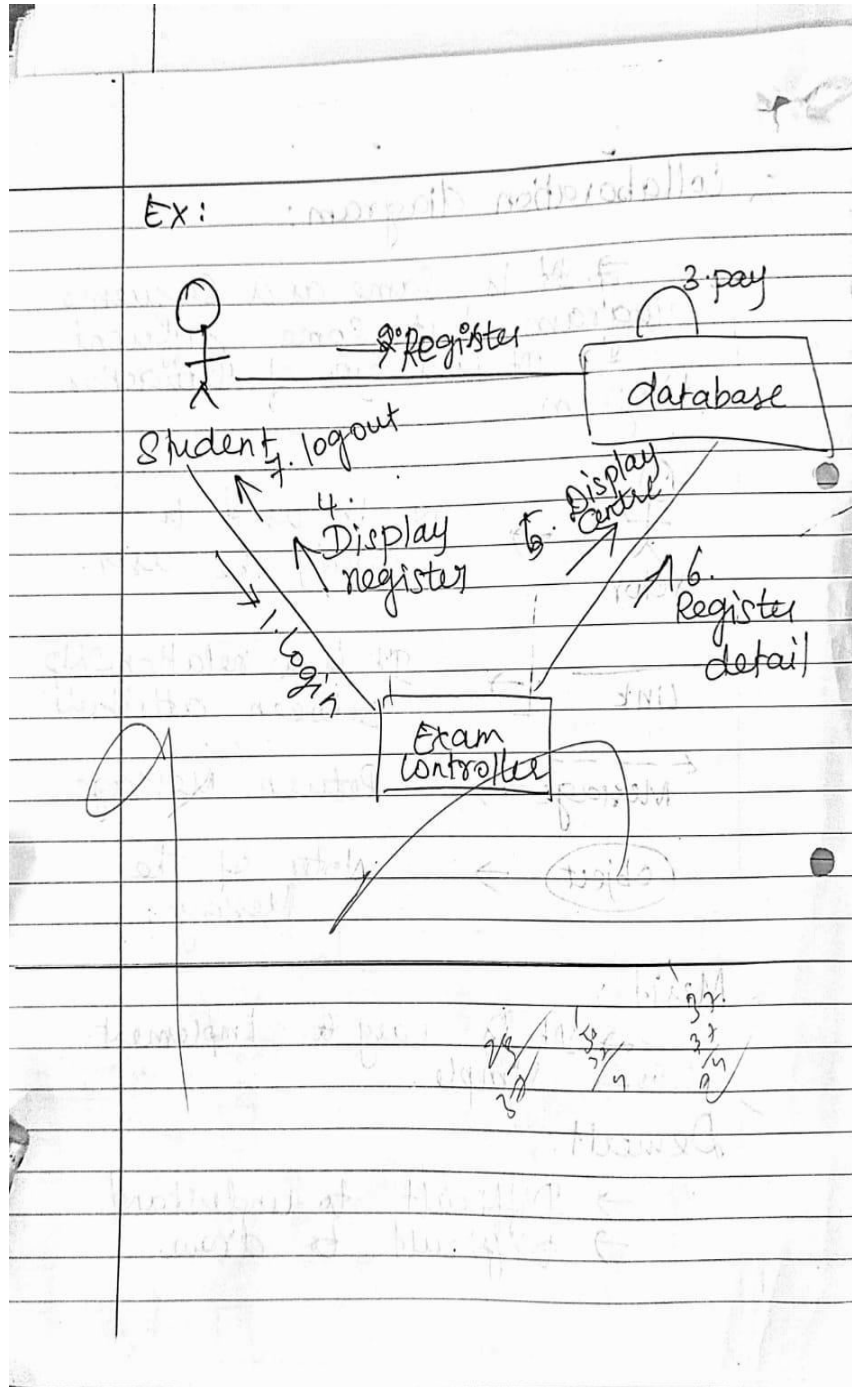 Ex:
3. pay
2. Register
database
Student
7. logout
4.
Display
register
5. Display
Centre
6.
Register
detail
1. Login
Exam
Controller